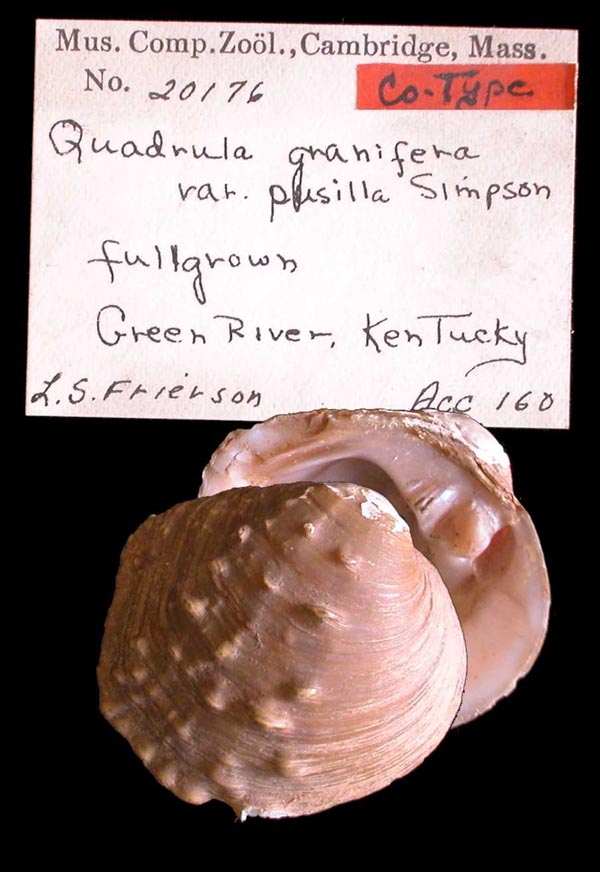 Mus. Comp. Zoöl., Cambridge, Mass.
No. 20176 Co-Type
Quadrula granifera
var. pusilla Simpson
fullgrown
Green River, Kentucky
L.S. Frierson Acc 160